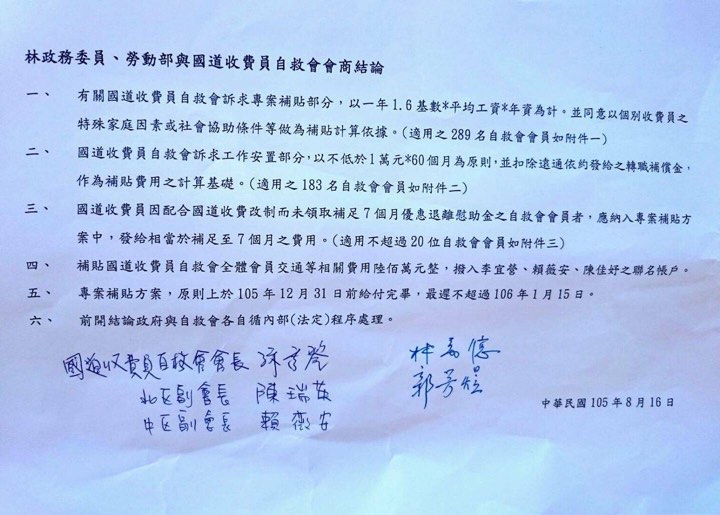 林政務委員、勞動部與國道收費員自救會會商結論
一、 有關國道收費員自救會訴求專案補貼部分，以一年1.6基數*平均工資*年資為計。並同意以個別收費員之
特殊家庭因素或社會協助條件等做為補貼計算依據。(適用之289名自救會會員如附件一)
二、 國道收費員自救會訴求工作安置部分，以不低於1萬元*60個月為原則，並扣除遠通依約發給之轉職補償金，
作為補貼費用之計算基礎。(適用之183名自救會會員如附件二)
三、 國道收費員因配合國道收費改制而未領取補足7個月優惠退離慰助金之自救會會員者，應納入專案補貼方
案中，發給相當於補足至7個月之費用。(適用不超過20位自救會會員如附件三)
四、 補貼國道收費員自救會全體會員交通等相關費用陸佰萬元整，撥入李宜營、賴薇安、陳佳妤之聯名帳戶。
五、 專案補貼方案，原則上於105年12月31日前給付完畢，最遲不超過106年1月15日。
六、 前開結論政府與自救會各自循內部(法定)程序處理。
國道收費員自救會會長 孫秀鑾 林萬億
北区副會長 陳瑞英 郭芳煜
中区副會長 賴薇安
中華民國105年8月16日